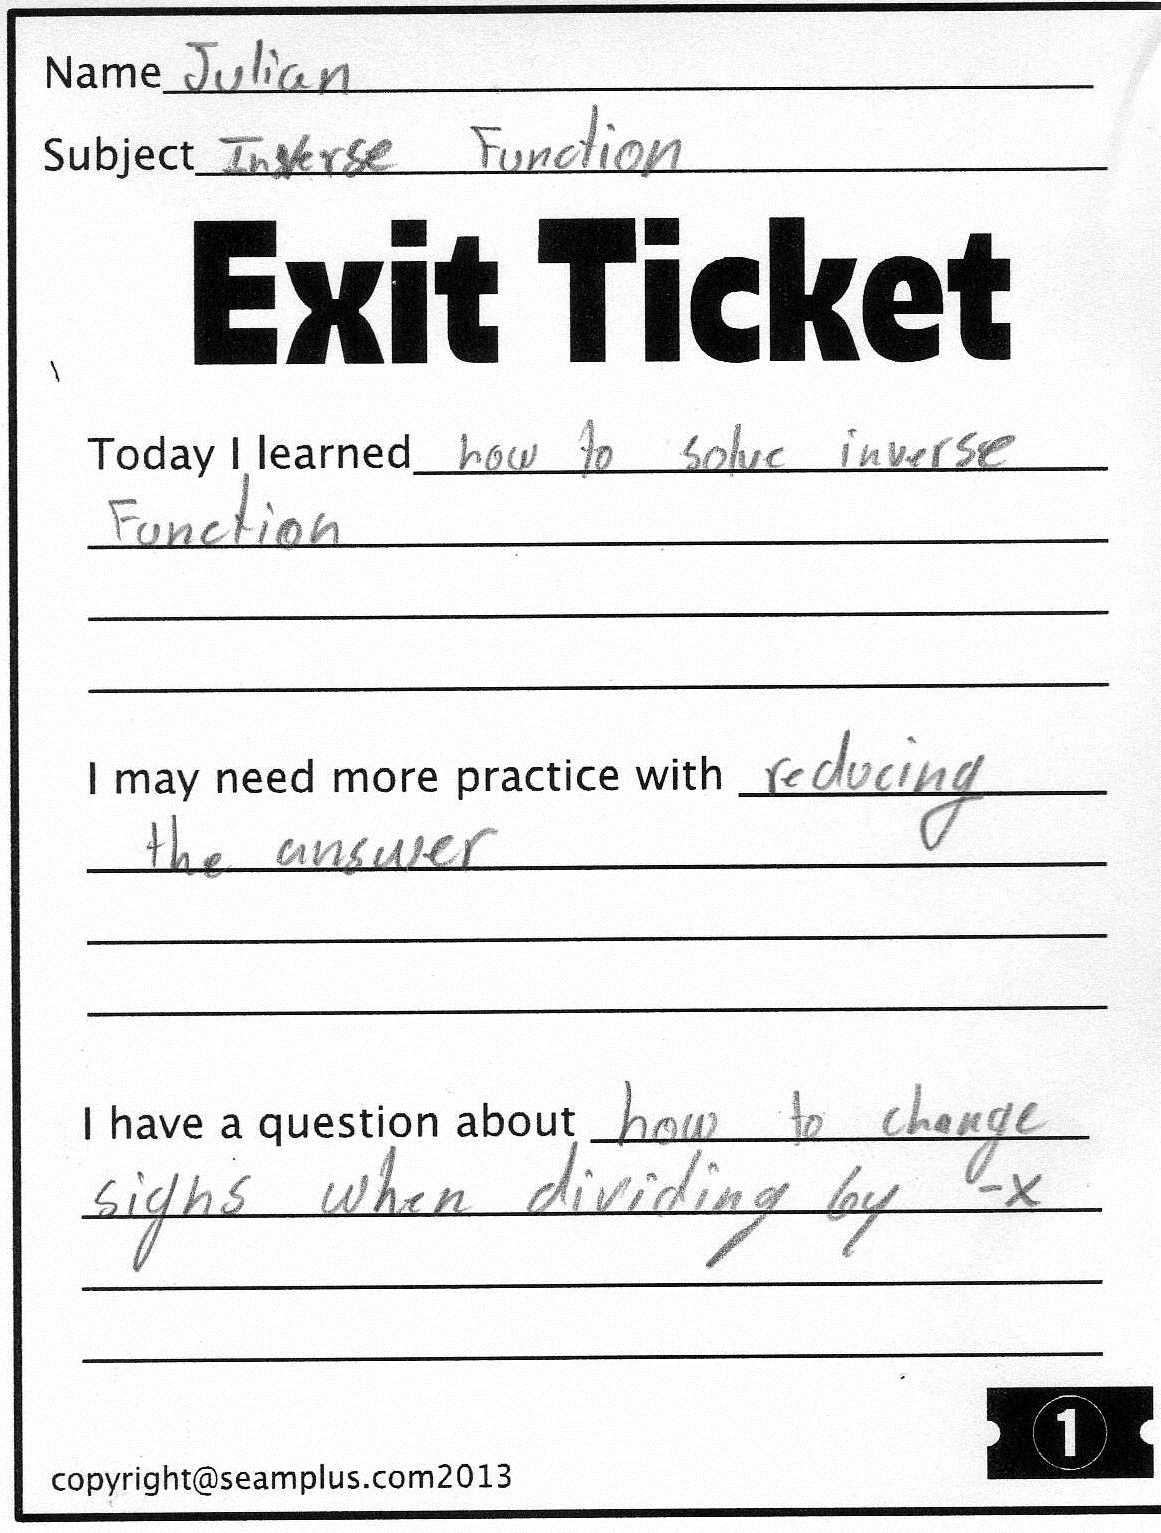 Name Julian
Subject Inverse Function
Exit Ticket
Today I learned how to solve inverse
Function
I may need more practice with reducing
the answer
I have a question about how to change
signs when dividing by -x
1
copyright@seamplus.com2013